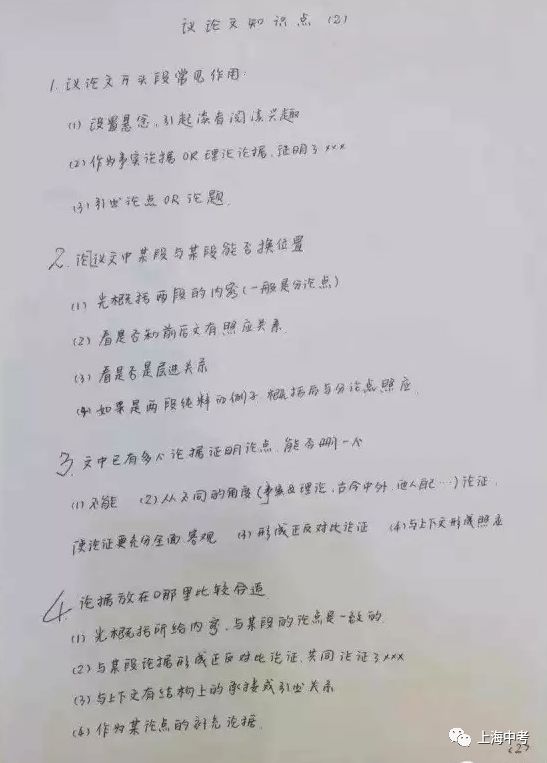 议论文知识点(2)
1.议论文开头段常见作用:
(1) 设置悬念,引起读者阅读兴趣
(2) 作为事实论据 OR 理论论据,证明了xxx
(3) 引出论点 OR 论题.
2.论议文中某段与某段能否换位置
(1) 先概括两段的内容(一般是分论点)
(2) 看是否和前后文有照应关系.
(3) 看是否是层进关系
(4) 如果是两段纯粹的例子,概括后与分论点照应.
3.文中已有多个论据证明论点,能否删一个
(1) 不能 (2) 从不同的角度(事实及理论,古今中外,他人自己…)论证,
使论证更充分全面客观 (3) 形成正反对比论证 (4) 与上下文形成照应
4.论据放在哪里比较合适
(1) 先概括所给内容,与某段的论点是一致的
(2) 与某段论据形成正反对比论证,共同论证了xxx
(3) 与上下文有结构上的承接或引出关系
(4) 作为某论点的补充论据.
上海中考
(2)